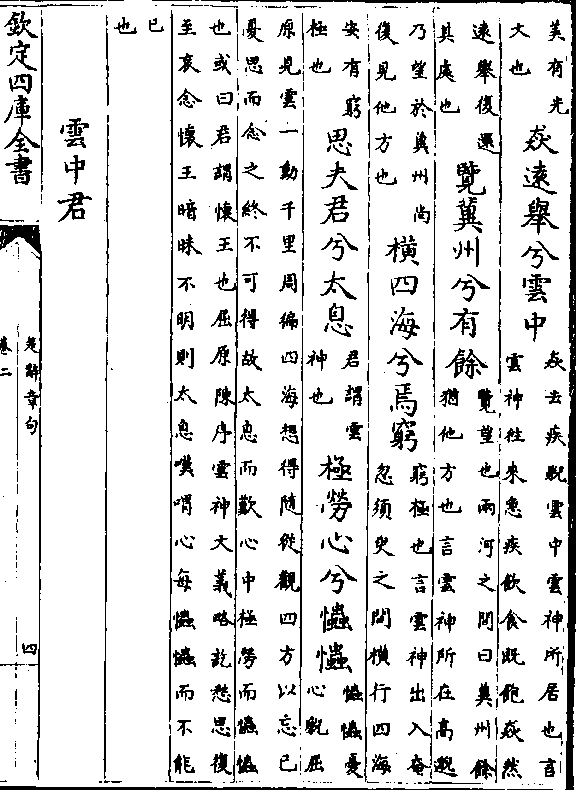 美有光大也焱遠舉兮雲中焱去疾貌雲中雲神所居也言雲神往來急疾飲食既飽焱然
遠舉復還其處也覽冀州兮有餘覽望也兩河之間曰冀州餘猶他方也言雲神所在高邈
乃望於冀州尚復見他方也橫四海兮焉窮窮極也言雲神出入奄忽須臾之間橫行四海
安有窮極也思夫君兮太息君謂雲神也極勞心兮𢥞𢥞𢥞𢥞憂心貌屈
原見雲一動千里周徧四海想得隨從觀四方以忘己憂思而念之終不可得故太息而歎心中極勞而𢥞𢥞
也或曰君謂懷王也屈原陳序雲神文義略訖愁思復至哀念懷王暗昧不明則太息嘆喟心每𢥞𢥞而不能
已也
雲中君
欽定四庫全書
楚辭章句
卷二
四